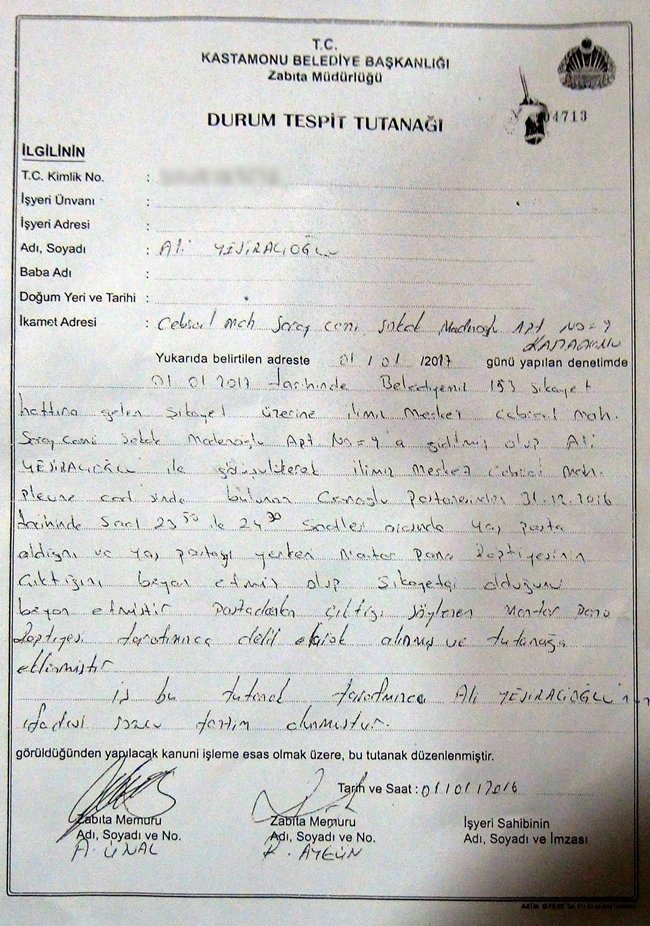 T.C.
KASTAMONU BELEDİYE BAŞKANLIĞI
Zabıta Müdürlüğü
DURUM TESPİT TUTANAĞI
04713
İLGİLİNİN
T.C. Kimlik No. :
İşyeri Ünvanı :
İşyeri Adresi :
Adı, Soyadı : Ali YEŞİRACIOĞLU
Baba Adı :
Doğum Yeri ve Tarihi :
İkamet Adresi : Cebrail mah Saray cami Sokak Apt No=9
KASTAMONU
Yukarıda belirtilen adreste 01/01/2017 günü yapılan denetimde
01.01.2017 tarihinde Belediyemiz 153 şikayet
hattına gelen şikayet üzerine ilimiz Merkez Cebrail mah.
Saray Cami Sokak Apt No=9'a gidilmiş olup Ali
YEŞİRACIOĞLU ile görüşülerek ilimiz Merkez Cebrail mah.
plevne cad'sinde bulunan Pastanesinden 31.12.2016
tarihinde Saat 23 50 ile 24 30 Saatleri arasında Yaş pasta
aldığını ve yaş pastayı yerken Mantar Pano Raptiyesinin
Çıktığını beyan etmiş olup Şikayetçi olduğunu
beyan etmiştir Pastadan çıktığı söylenen Mantar Pano
Raptiyesi tarafımızca delil olarak alınmış ve tutanağa
eklenmiştir
iş bu tutanak tarafımızca Ali YEŞİRACIOĞLU'nun
ifadesi tanzim olunmuştur.
görüldüğünden yapılacak kanuni işleme esas olmak üzere, bu tutanak düzenlenmiştir.
Tarih ve Saat : 01/01/2016
Zabıta Memuru Zabıta Memuru İşyeri Sahibinin
Adı, Soyadı ve No. Adı, Soyadı ve No. Adı, Soyadı ve İmzası
A. ÜNAL R. AYGÜN